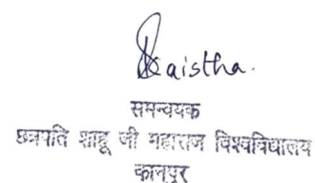 Kaistha.
समन्वयक
छत्रपति शाहू जी महाराज विश्वविद्यालय
कानपुर